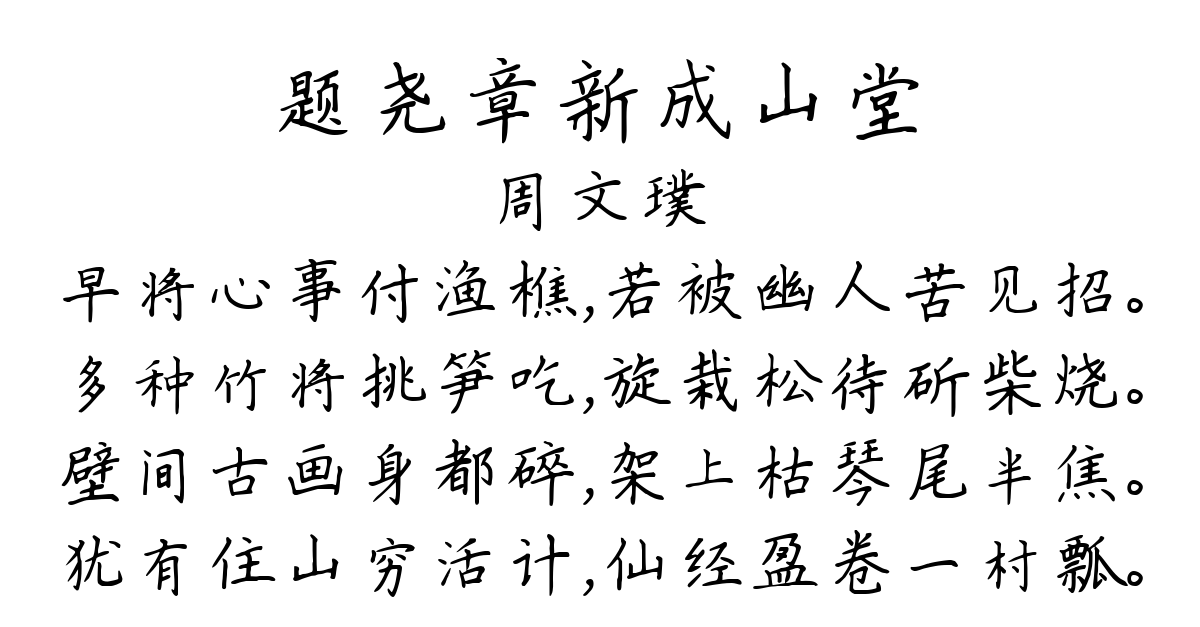 题尧章新成山堂
周文璞
早将心事付渔樵,若被幽人苦见招。
多种竹将挑笋吃,旋栽松待斫柴烧。
壁间古画身都碎,架上枯琴尾半焦。
犹有住山穷活计,仙经盈卷一村瓢。